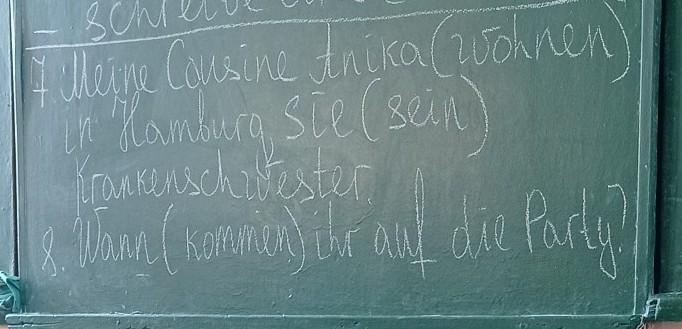 – schreibe
7. Meine Cousine Anika (wohnen)
in Hamburg, sie (sein)
Krankenschwester.
8. Wann (kommen) ihr auf die Party?